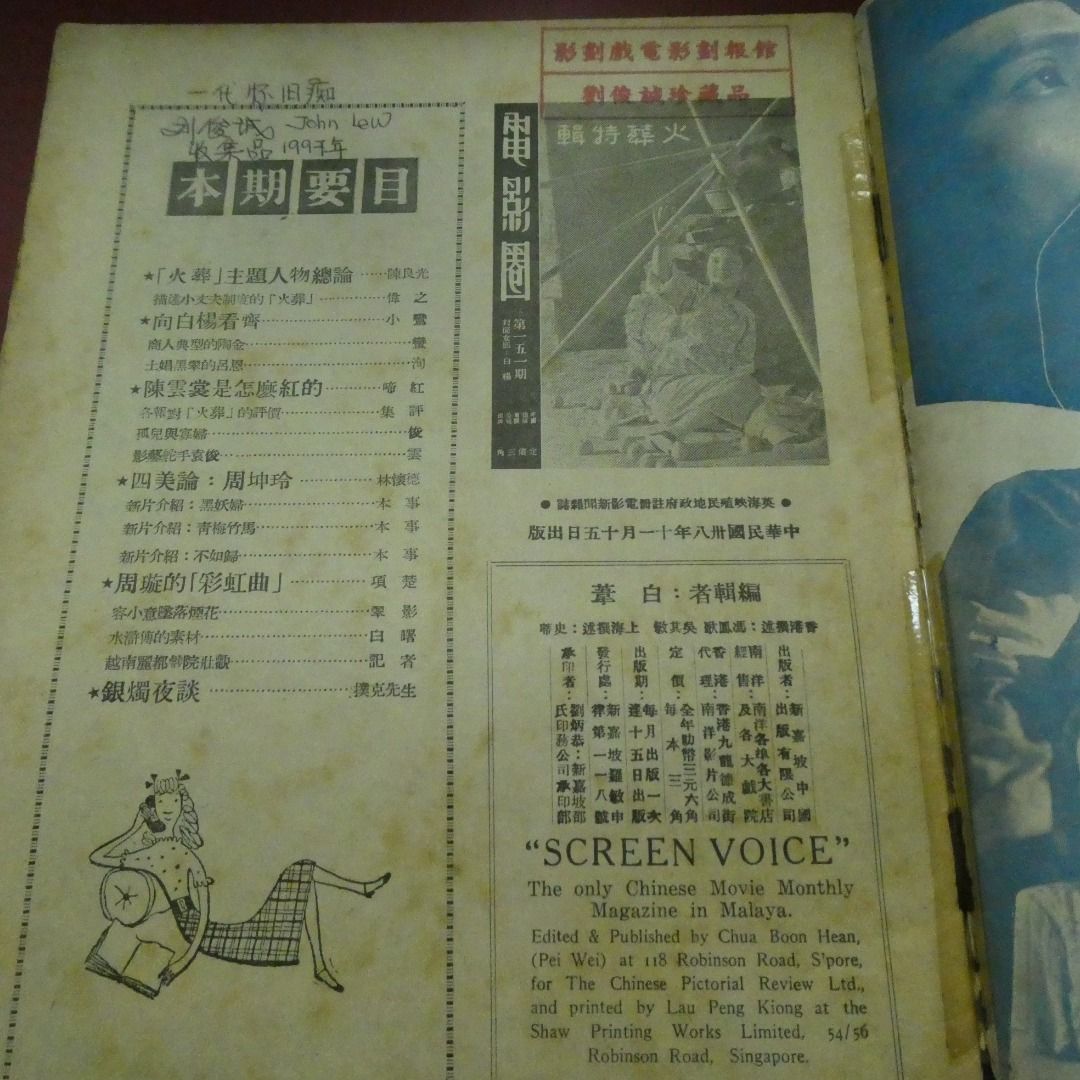 一代怀旧痴
刘俊诚 John Lew
收集品 1997年
本期要目
★「火葬」主題人物總論……陳良光
描述小丈夫制度的「火葬」……偉之
★向白楊看齊……小鷺
商人典型的陶金……蠻
土娼黑翠的呂恩……洵
★陳雲裳是怎麼紅的……啼紅
各報對「火葬」的評價……集評
孤兒與寡婦……俊
影藝舵手袁俊……雲
★四美論：周坤玲……林懷德
新片介紹：黑妖婦……本事
新片介紹：青梅竹馬……本事
新片介紹：不如歸……本事
★周璇的「彩虹曲」……項楚
容小意墜落煙花……翠影
水滸傳的素材……白曙
越南麗都戲院壯觀……記者
★銀燭夜談……撲克先生
影劃戲電影劃報館
劉俊誠珍藏品
電影圈
第一五一期
封面女郎：白楊
定價三角
火葬特輯
●英海峽殖民地政府註冊電影新聞雜誌●
中華民國卅八年十一月十五日出版
編輯者：白葦
香港撰述：馮鳳歌 吳其敏 上海撰述：史蒂
出版者：新嘉坡中國出版有限公司
南洋經售：南洋各埠各大書店及各大戲院
香港代理：香港九龍德成街南洋影片公司
定價：全年助幣三元六角每本三角
出版期：每月出版一次逢十五日出版
發行處：新嘉坡羅敏申律第一一八號
承印者：劉炳恭：新嘉坡邵氏印務公司承印部
“SCREEN VOICE”
The only Chinese Movie Monthly
Magazine in Malaya.
Edited & Published by Chua Boon Hean,
(Pei Wei) at 118 Robinson Road, S'pore,
for The Chinese Pictorial Review Ltd.,
and printed by Lau Peng Kiong at the
Shaw Printing Works Limited, 54/56
Robinson Road, Singapore.